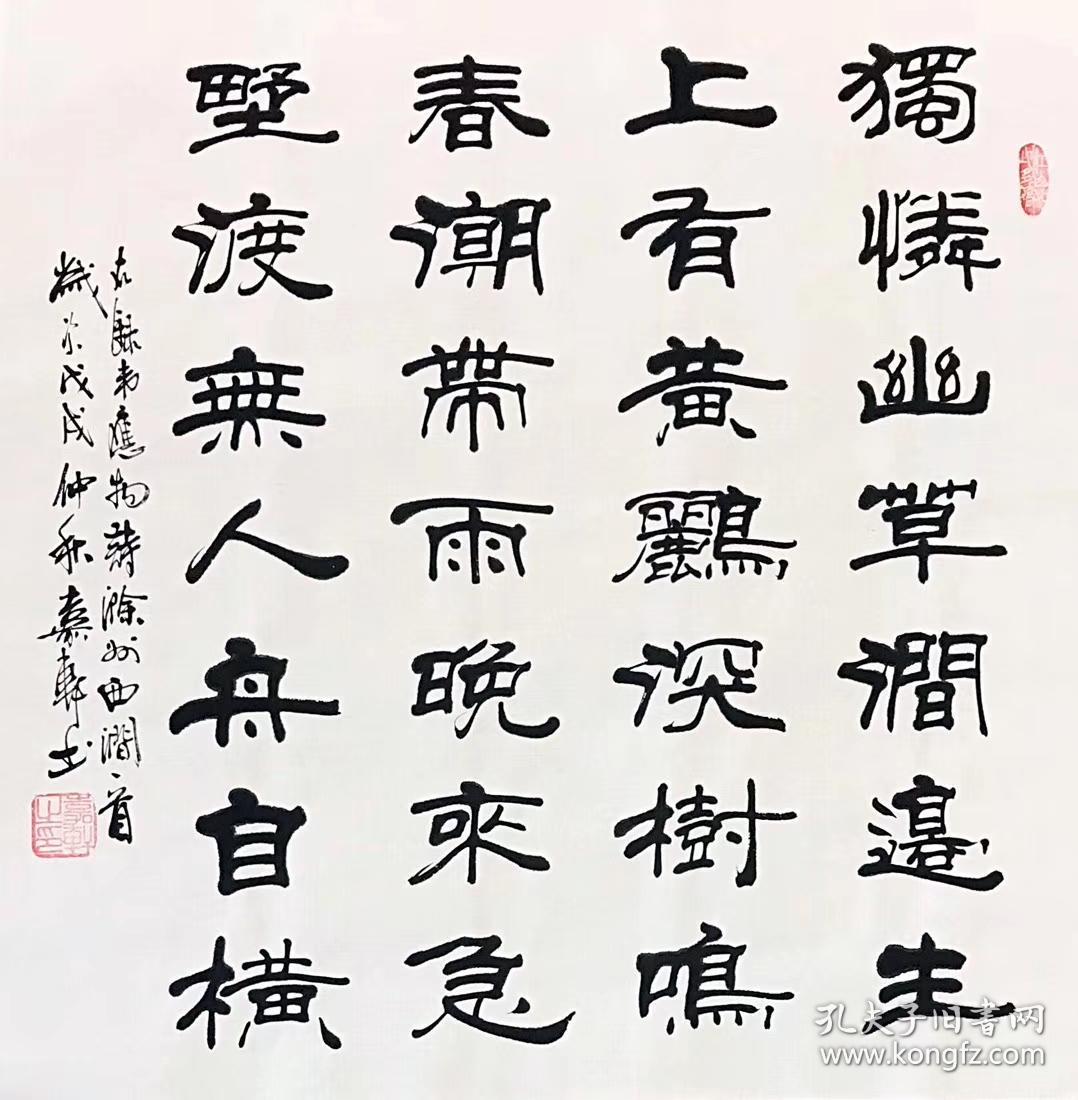 獨憐幽草澗邊生
上有黃鸝深樹鳴
春潮帶雨晚來急
野渡無人舟自橫
右錄韋應物詩滁州西澗一首
歲次戊戌仲秋嘉軒書
孔夫子旧书网
www.kongfz.com